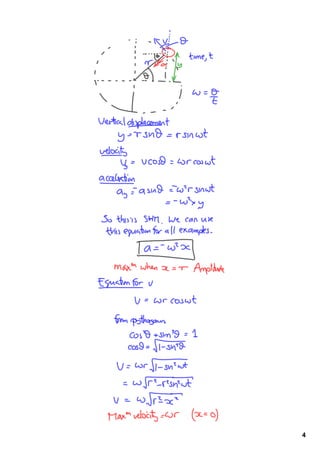 v θ
time, t
r
a
y
θ
ω = θ/t
Vertical displacement
y = r sinθ = r sinωt
velocity
y = vcosθ = ωr cosωt
acceleration
ay = -a sinθ = -ω²r sinωt
= -ω² y
So this is SHM. We can use
this equation for all examples.
a = -ω² x
maxᵐ when x = r Amplitude
Equation for v
v = ωr cosωt
from pythagoras
cos²θ + sin²θ = 1
cosθ = √1-sin²θ
v = ωr √1-sin²ωt
= ω√r²-r²sin²ωt
v = ω√r²-x²
Maxᵐ velocity = ωr (x=0)
4